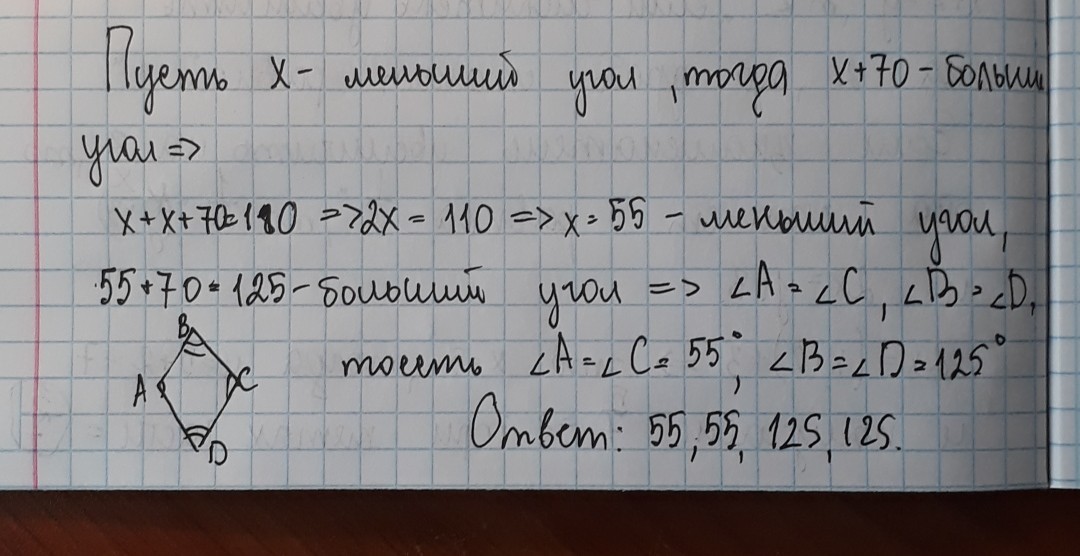 Пусть x - меньший угол, тогда x+70 - больший
угол =>
x + x + 70 = 180 => 2x = 110 => x = 55 - меньший угол,
55 + 70 = 125 - больший угол => ∠A = ∠C, ∠B = ∠D,
тоесть ∠A = ∠C = 55°, ∠B = ∠D = 125°
B
A
C
D
Ответ: 55, 55, 125, 125.